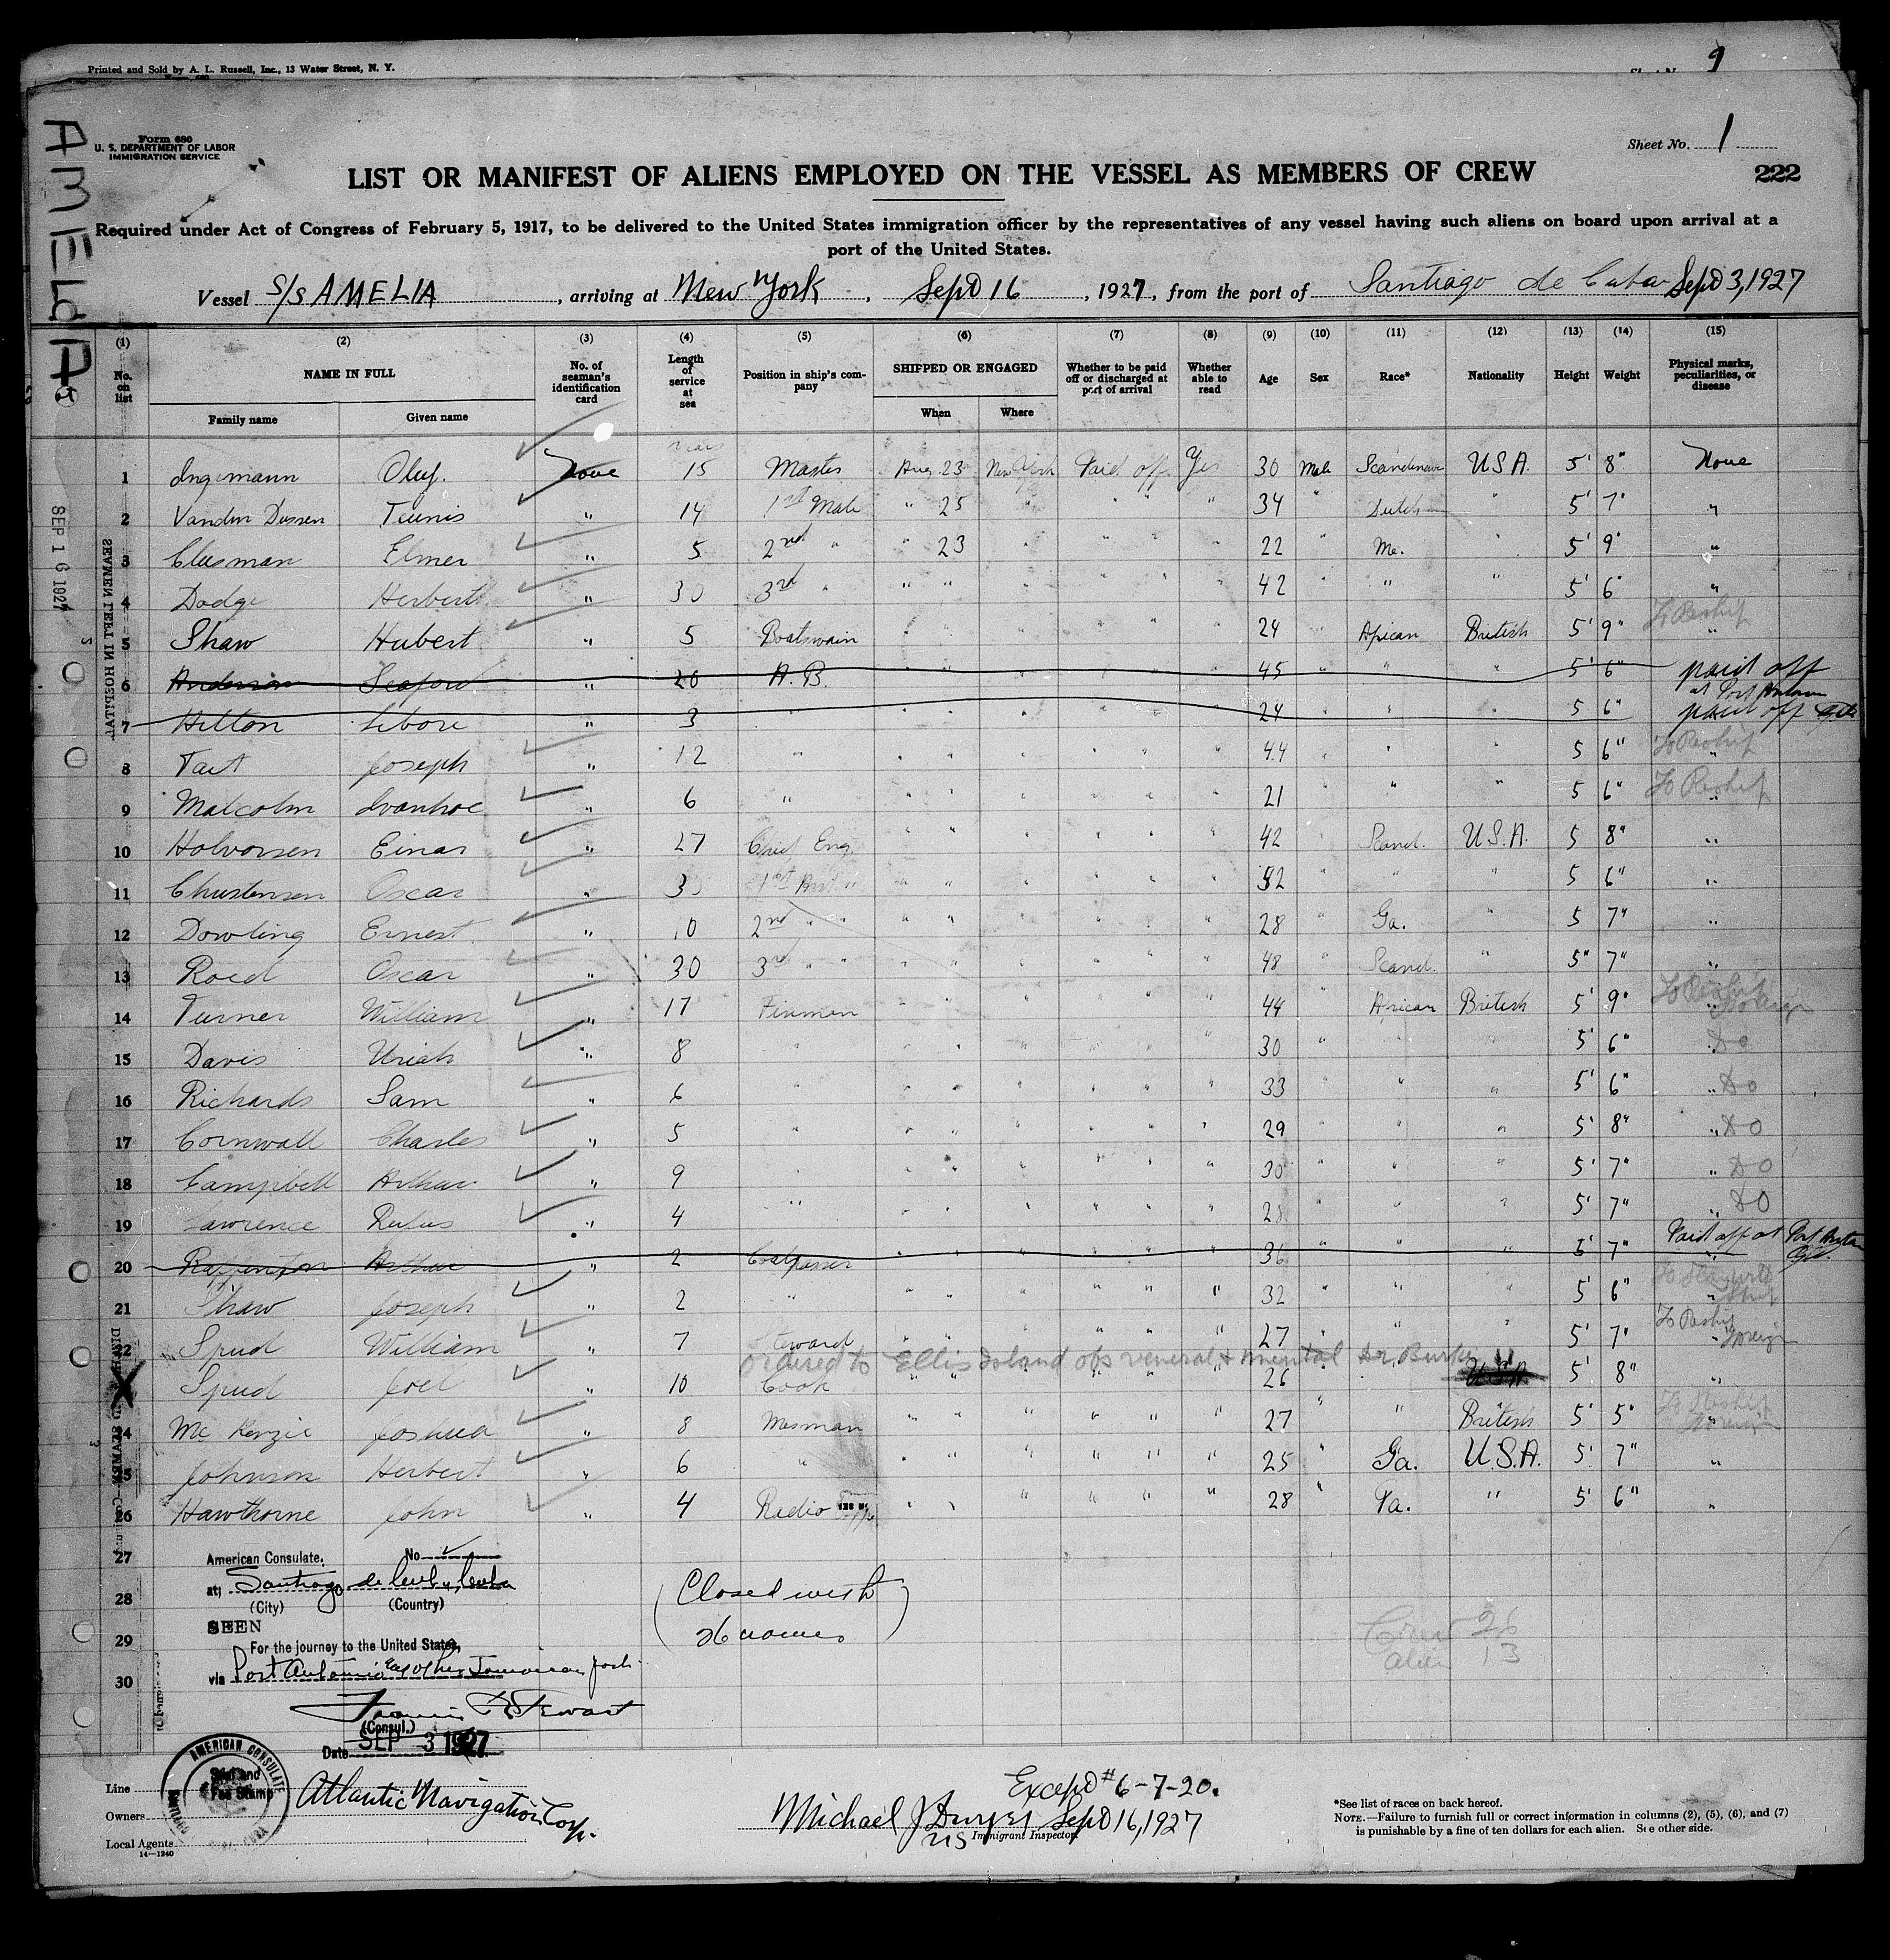 Printed and Sold by A. L. Russell, Inc., 13 Water Street, N. Y.
9
Form 680
U. S. DEPARTMENT OF LABOR
IMMIGRATION SERVICE
Sheet No. 1
LIST OR MANIFEST OF ALIENS EMPLOYED ON THE VESSEL AS MEMBERS OF CREW
222
Required under Act of Congress of February 5, 1917, to be delivered to the United States immigration officer by the representatives of any vessel having such aliens on board upon arrival at a
port of the United States.
Vessel S/S AMELIA, arriving at New York, Sept 16, 1927, from the port of Santiago de Cuba Sept 3, 1927
AMELIA
SEP 16 1927
SEAMEN LEFT IN HOSPITAL
(1) (2) (3) (4) (5) (6) (7) (8) (9) (10) (11) (12) (13) (14) (15)
No. on list NAME IN FULL No. of seaman's identification card Length of service at sea Position in ship's company SHIPPED OR ENGAGED Whether to be paid off or discharged at port of arrival Whether able to read Age Sex Race* Nationality Height Weight Physical marks, peculiarities, or disease
Family name Given name When Where
1 Ingemann Oluf. None 15 Master Aug. 23 New York Paid off Yes 30 Male Scandinavian U.S.A. 5' 8" None
2 Vandin Dussen Teunis " 14 1st Mate " 25 " " " " 34 " Dutch " 5' 7" "
3 Clusman Elmer " 5 2nd " " 23 " " " " 22 " Me. " 5' 9" "
4 Dodge Herbert " 30 3rd " " " " " " " 42 " " 5' 6" "
5 Shaw Hubert " 5 Boatswain " " " " " 24 " African British 5' 9" " To Reship
6 Anderson Seaford " 20 A.B. " " " 45 " " " 5' 6" paid off
at Port Antonio
7 Hilton Libore " 3 " " " " 24 " " " 5 6" paid off
8 Tait Joseph " 12 " " " " " " " 44 " " " 5 6" " To Reship
9 Malcolm Ivanhoe " 6 " " " " " " " 21 " " " 5 6" " To Reship
10 Holvorsen Einar " 27 Chief Eng. " " " " " " 42 " Scand. U.S.A. 5 8" "
11 Christensen Oscar " 30 1st Asst " " " " " " " 32 " " " 5 6" "
12 Dowling Ernest " 10 2nd " " " " " " " " 28 " Ga. " 5 7" "
13 Roed Oscar " 30 3rd " " " " " " " " 48 " Scand. " 5" 7" "
14 Turner William " 17 Fireman " " " " " " 44 " African British 5' 9" " To Reship Foreign
15 Davis Uriah " 8 " " " " " " " 30 " " " 5' 6" " Do
16 Richards Sam " 6 " " " " " " " 33 " " " 5' 6" " Do
17 Cornwall Charles " 5 " " " " " " " 29 " " " 5' 8" " Do
18 Campbell Arthur " 9 " " " " " " " 30 " " " 5' 7" " Do
19 Lawrence Rufus " 4 " " " " " " " 28 " " " 5' 7" " Do
20 Arthur " 2 Coalpasser " " " " " " 36 " " " 5' 7" Paid off at Port Antonio
21 Shaw Joseph " 2 " " " " " " 32 " " " 5' 6" "
22 Spud William " 7 Steward " " " " " " 27 " " " 5' 7" " To Reship Foreign
Ordered to Ellis Island obs veneral & mental Dr. Burke
Spud Joel " 10 Cook " " " " " 26 " " U.S.A. 5' 8" "
24 Mc Kenzie Joshua " 8 Messman " " " " " " 27 " " British 5' 5" " To Reship Foreign
25 Johnson Herbert " 6 " " " " " " " 25 " Ga. U.S.A. 5' 7" "
26 Hawthorne John " 4 Radio " " " " " " 28 " Va. " 5' 6" "
27 American Consulate. No
at Santiago de Cuba, Cuba
28 (City) (Country)
(Closed with
26 names)
SEEN
29 For the journey to the United States,
Crew 26
Alien 13
30 via Port Antonio & other Jamaican ports
Francis R Stewart
(Consul.)
Date SEP 3 1927
AMERICAN CONSULATE
Seal and
Fee Stamp
SANTIAGO
Line
Owners
Local Agents
14—1240
Atlantic Navigation Corp.
Except # 6-7-20.
Michael J Dwyer Sept 16, 1927
US Immigrant Inspector.
*See list of races on back hereof.
NOTE.—Failure to furnish full or correct information in columns (2), (5), (6), and (7)
is punishable by a fine of ten dollars for each alien. See other side.